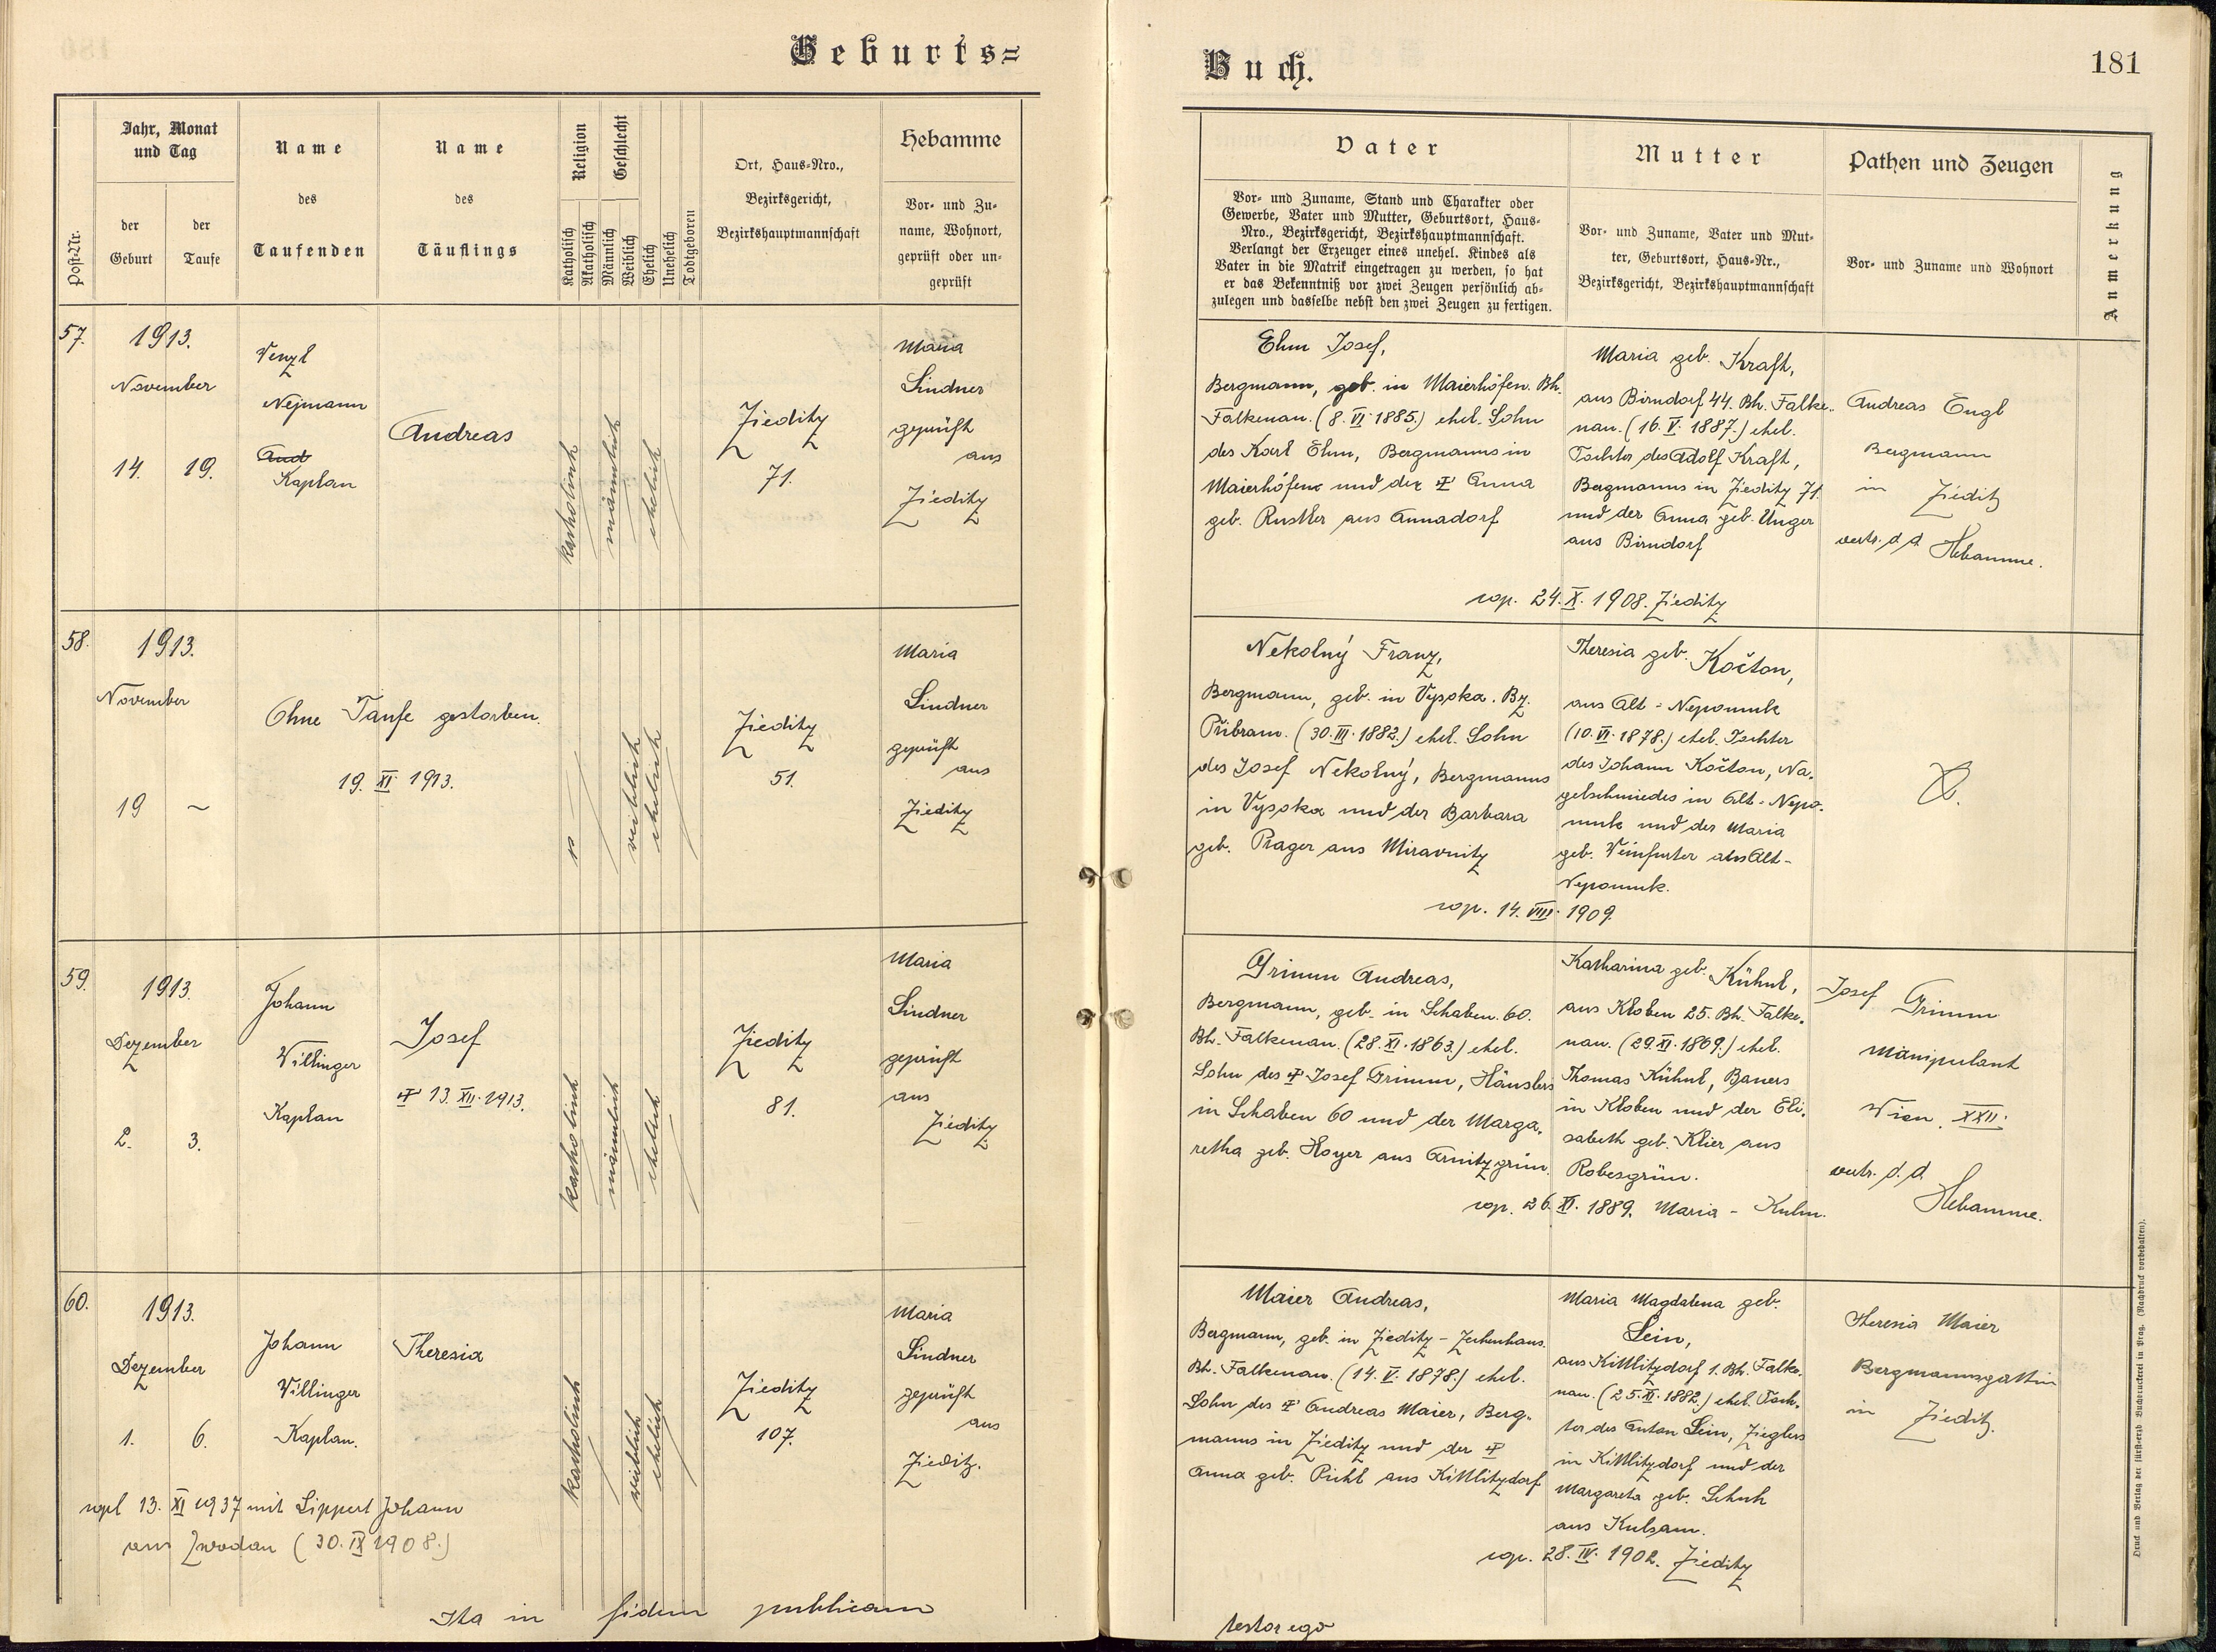 Geburts=
Buch.
181
Post-Nr.
Jahr, Monat
und Tag
der
Geburt
der
Taufe
Name
des
Taufenden
Name
des
Täuflings
Religion
Katholisch
Akatholisch
Geschlecht
Männlich
Weiblich
Ehelich
Unehelich
Todtgeboren
Ort, Haus=Nro.,
Bezirksgericht,
Bezirkshauptmannschaft
Hebamme
Vor= und Zu=
name, Wohnort,
geprüft oder un=
geprüft
Vater
Vor= und Zuname, Stand und Charakter oder
Gewerbe, Vater und Mutter, Geburtsort, Haus=
Nro., Bezirksgericht, Bezirkshauptmannschaft.
Verlangt der Erzeuger eines unehel. Kindes als
Vater in die Matrik eingetragen zu werden, so hat
er das Bekenntniß vor zwei Zeugen persönlich ab=
zulegen und dasselbe nebst den zwei Zeugen zu fertigen.
Mutter
Vor= und Zuname, Vater und Mut=
ter, Geburtsort, Haus=Nr.,
Bezirksgericht, Bezirkshauptmannschaft
Pathen und Zeugen
Vor= und Zuname und Wohnort
Anmerkung
57.
1913.
November
14.
19.
Wenzl
Nejmann
And
Kaplan
Andreas
katholisch
männlich
ehelich
Zieditz
71.
Maria
Lindner
geprüft
aus
Zieditz
Ehm Josef,
Bergmann, geb. in Maierhöfen. Bh.
Falkenau. (8. VI. 1885.) ehel. Sohn
des Karl Ehm, Bergmanns in
Maierhöfen und der † Anna
geb. Rustler aus Annadorf
Maria geb. Kraft,
aus Birndorf 44. Bh. Falke-
nau. (16. V. 1887.) ehel.
Tochter des Adolf Kraft,
Bergmanns in Zieditz 71.
und der Anna geb. Unger
aus Birndorf
cop. 24. X. 1908. Zieditz
Andreas Engl
Bergmann
in Zieditz
vertr. d. d. Hebamme.
58.
1913.
November
19
~
Ohne Taufe gestorben.
19. XI. 1913.
weiblich
ehelich
Zieditz
51.
Maria
Lindner
geprüft
aus
Zieditz
Nekolný Franz,
Bergmann, geb. in Vysoka. Bz.
Přibram. (30. III. 1882.) ehel. Sohn
des Josef Nekolný, Bergmanns
in Vysoka und der Barbara
geb. Prager aus Miravnitz
Theresia geb. Kočton,
aus Alt-Nepomuk
(10. VI. 1878.) ehel. Tochter
des Johann Kočton, Na-
gelschmiedes in Alt-Nepo-
muk und der Maria
geb. Weinfurter aus Alt-
Nepomuk.
cop. 14. VIII. 1909.
59.
1913.
Dezember
2.
3.
Johann
Willinger
Kaplan
Josef
† 13. XII. 1913.
katholisch
männlich
ehelich
Zieditz
81.
Maria
Lindner
geprüft
aus
Zieditz
Grimm Andreas,
Bergmann, geb. in Schaben. 60.
Bh. Falkenau. (28. XI. 1863.) ehel.
Sohn des † Josef Grimm, Häuslers
in Schaben 60 und der Marga-
retha geb. Hoyer aus Arnitzgrün.
Katharina geb. Kühnl,
aus Kloben 25. Bh. Falke-
nau. (29. XI. 1869.) ehel.
Thomas Kühnl, Bauers
in Kloben und der Eli-
sabeth geb. Klier aus
Robesgrün.
cop. 26. XI. 1889. Maria - Kulm.
Josef Grimm
Manipulant
Wien. XXII.
vertr. d. d.
Hebamme.
60.
1913.
Dezember
1.
6.
Johann
Willinger
Kaplan.
Theresia
katholisch
weiblich
ehelich
Zieditz
107.
Maria
Lindner
geprüft
aus
Zieditz.
Maier Andreas,
Bergmann, geb. in Zieditz - Zechenhaus.
Bh. Falkenau. (14. V. 1878.) ehel.
Sohn des † Andreas Maier, Berg-
manns in Zieditz und der †
Anna geb. Pichl aus Kittlitzdorf
Maria Magdalena geb.
Lein,
aus Kittlitzdorf 1. Bh. Falke-
nau. (25. XI. 1882.) ehel. Toch-
ter des Anton Lein, Zieglers
in Kittlitzdorf und der
Margareta geb. Schuh
aus Kulsam.
cop. 28. IV. 1902. Zieditz
Theresia Maier
Bergmannsgattin
in Zieditz.
copl 13. XI 1937 mit Lippert Johann
aus Zwodau (30. IX 1908.)
Ita in fidem publicam
testor ego
Druck und Verlag der fürst=erzb. Buchdruckerei in Prag. (Nachdruck vorbehalten).